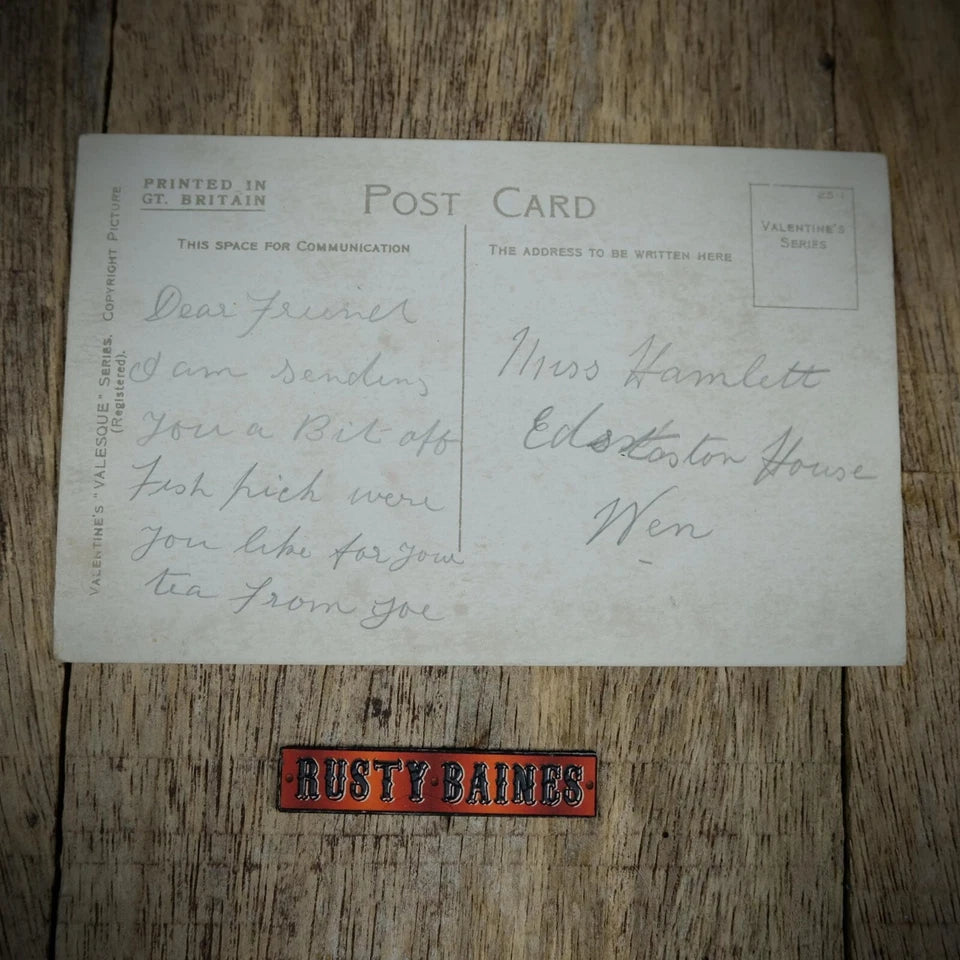 PRINTED IN
GT. BRITAIN
POST CARD
THIS SPACE FOR COMMUNICATION
THE ADDRESS TO BE WRITTEN HERE
VALENTINE'S
SERIES
VALENTINE'S "VALESQUE" SERIES. COPYRIGHT PICTURE
(Registered).
Dear Friend
I am sending
you a Bit off
Fish pick were
you like for your
tea From Joe
Miss Hamlett
Edstaston House
Wen
RUSTY·BAINES